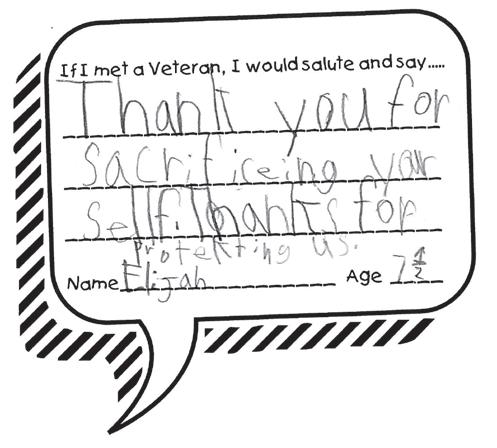 If I met a Veteran, I would salute and say.....
Thank you for
Sacrificeing your
Self. Thanks for
Protekting us.
Name Elijah Age 7 1/2